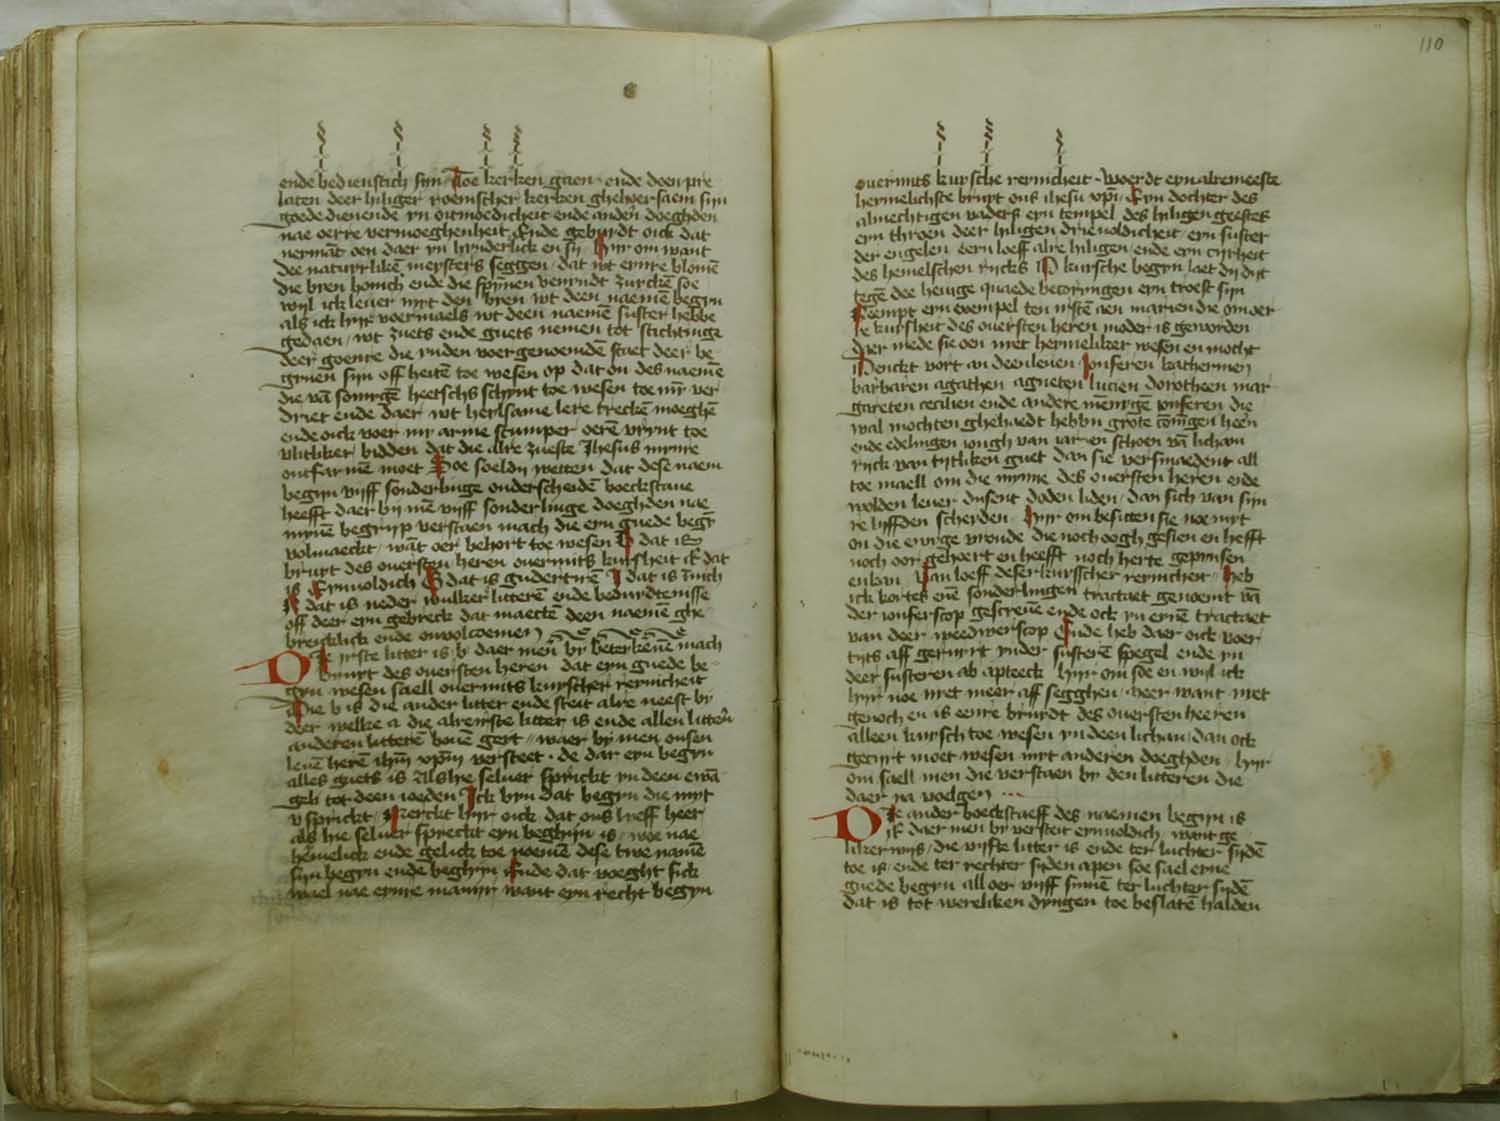 ende bedienstich sijn Toe kerken gaen ende doen pre
laten deer hiliger roemscher kerken ghehoersaem sijn
goede dienende yn oitmoedicheit ende anderē doeghden
nae oerre vermoeghenheit Ende geburdt oick dat
nermāt oen daer yn hynderlick en sij Hijr om want
dee naturlikē meysters seggen dat wt eynre blomē
die bien honich ende die spynen venyndt zurckē soe
wyl ick lever nyt den bien wt deen naemē begyn
als ick hijr voermaels wt deen naemē suster hebbe
gedaen wt zuets ende guets nemen tot stichtinge
deer goenre die ynden voergenoemdē staet deer be
gynen sijn off heitē toe wesen op dat on des naemē
die vā somygē heetschs schynt toe wesen toe nyt ver
driet ende daer wt heilsame lere treckē moeghē
ende oick voer mij arme stumper oerē vrynt toe
vlitliker bidden dat die alre zueste Jhesus mynre
ontfarmē moet Soe soeldij weiten dat dese naem
begyn vijff sonderlinge onderscheidē boeckstave
heefft daer bij mē vijff sonderlinge doeghden nae
mynē begrijp verstaen mach die eyn guede begȳ
volmaeckt wāt oer behort toe wesen B dat is
bruyt des oversten heren overmits kuysheit E dat
is Eynvoldich G dat is gudertirē J dat is Jnich
N dat is neder wulker litterē ende beduydtenisse
off deer eyn gebreck dat maectē deen naemē ghe
breicklick ende onvolcomen
Die irste litter is b daer men bij beteykenē mach
bruyt des oversten heren dat eyn guede be
gyn wesen sall overmits kuyscher reynicheit
Die b is die ander litter ende steit alre neest bij
deer welke a die alreirste litter is ende allen litterē
anderen litterē bovē geet waer bij men onsen
levē herē ihm̄ xpm̄ versteet de dar eyn begyn
alles guets is Als he selver sprickt yn deen ewā
geli tot deen joeden Jck byn dat begyn die myt
v sprickt Merckt hijr oick dat ons lieff heer
als hie selver spreckt eyn beghyn is woe nae
hēmelick ende gelick toe noemē dese twe namē
sijn begyn ende beghyn Ende dat voeght sick
wael nae eynre manyr want eyn recht begyn
110
overmits kuysche reynicheit woerdt eyn alremeeste
heymelichste bruyt ons ihesu xp̄i Eyn dochter des
almechtigen vaders eyn tempel des hiligen geestes
eyn throen deer hiligen drievoldicheit eyn suster
der engelen eern loeff alre hiligen ende eyn cyrheit
des hemelschen rijcks O kuysche begyn laet dij dijt
tegē dee hevige quaede becaryngen eyn troest sijn
Neempt eyn exempel ten irstē aen marien die om oer
re kuysheit des oversten heren moder is geworden
daer mede sie oen met hermeliker wesen en mocht
Denckt vort an deen leven Jonferen katherinen
barbaren agathen agneten lucien dorotheen mar
gareten cecilien ende andere mēnygē jonferen die
wal mochten ghehaedt hebbn̄ grote coninḡen heen
ende edelingen jongh van jaren schoen vā licham
rijck van tijtliken guet dan sie versmaedent all
toe maell om die mynne des oversten heren ende
wolden lever dusent doden liden dan sich van sijn
re lijffden scheyden Hijr om besitten sie noe myt
on die ewige vroude die noch oogh gesien en hefft
noch oor gehoert en heefft noch herte geprinsen
en kan Van loeff deser kuysscher reynicheit heb
ick kortes enē sonderlingen tractaet genoemt vā
der jonferscop gescrevē ende ock yn eynē tractaet
van deer weedwerscop Ende heb daer oick voer
tijts aff geruyrt ynder susterē spegel ende yn
deer susteren ab apteeck hijr om soe en wijl ick
hijr noe niet meer aff segghen meer want niet
genoch en is eenre bruydt des oversten heeren
alleen kuysch toe wesen yn deen licham dan ock
gecirt moet wesen myt anderen doeghden hijr
om sall men die verstaen bij den litteren die
daer na volgen
Die ander boeckstaeff des naemen begijn is
E daer men bij versteit eynvoldich want ge
likerwijs die vijfte litter is ende ter luchter sijdē
toe is ende ter rechter sijden apen soe sael eyne
guede begyn all oer vijff sinnē ter luchter sijdē
dat is tot wereliken dyngen toe beslatē halden